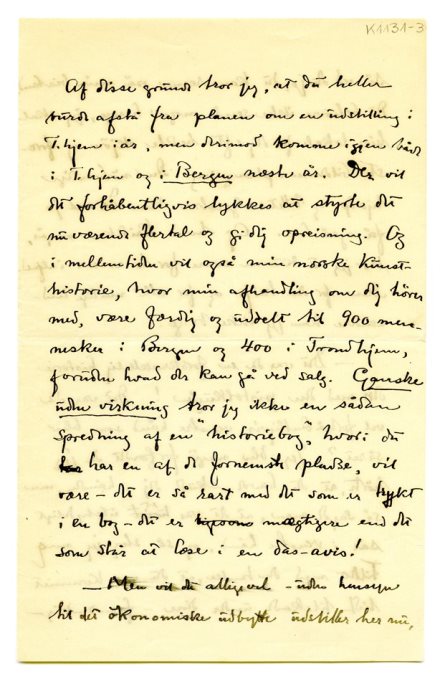 K1131-3
Af disse grunde tror jeg, at du heller
burde afstå fra planen om en udstilling i
T.hjem i år, men derimod komme igjen både
i T.hjem og i Bergen næste år. Der vil
det forhåbentligvis lykkes at styrte det
nuværende flertal og gi dig opreisning. Og
i mellemtiden vil også min norske kunst-
historie, hvor min afhandling om dig hører
med, være færdig og uddelt til 900 men-
nesker i Bergen og 400 i Trondhjem,
foruden hvad der kan gå ved salg. Ganske
uden virkning tror jeg ikke en sådan
spredning af en "historiebog", hvori du
har en af de fornemste pladse, vil
være – det er så rart med det som er trykt
i en bog – det er ligesom mægtigere end det
som står at læse i en das-avis!
– Men vil du alligevel – uden hensyn
til det økonomiske udbytte udstiller her nu,